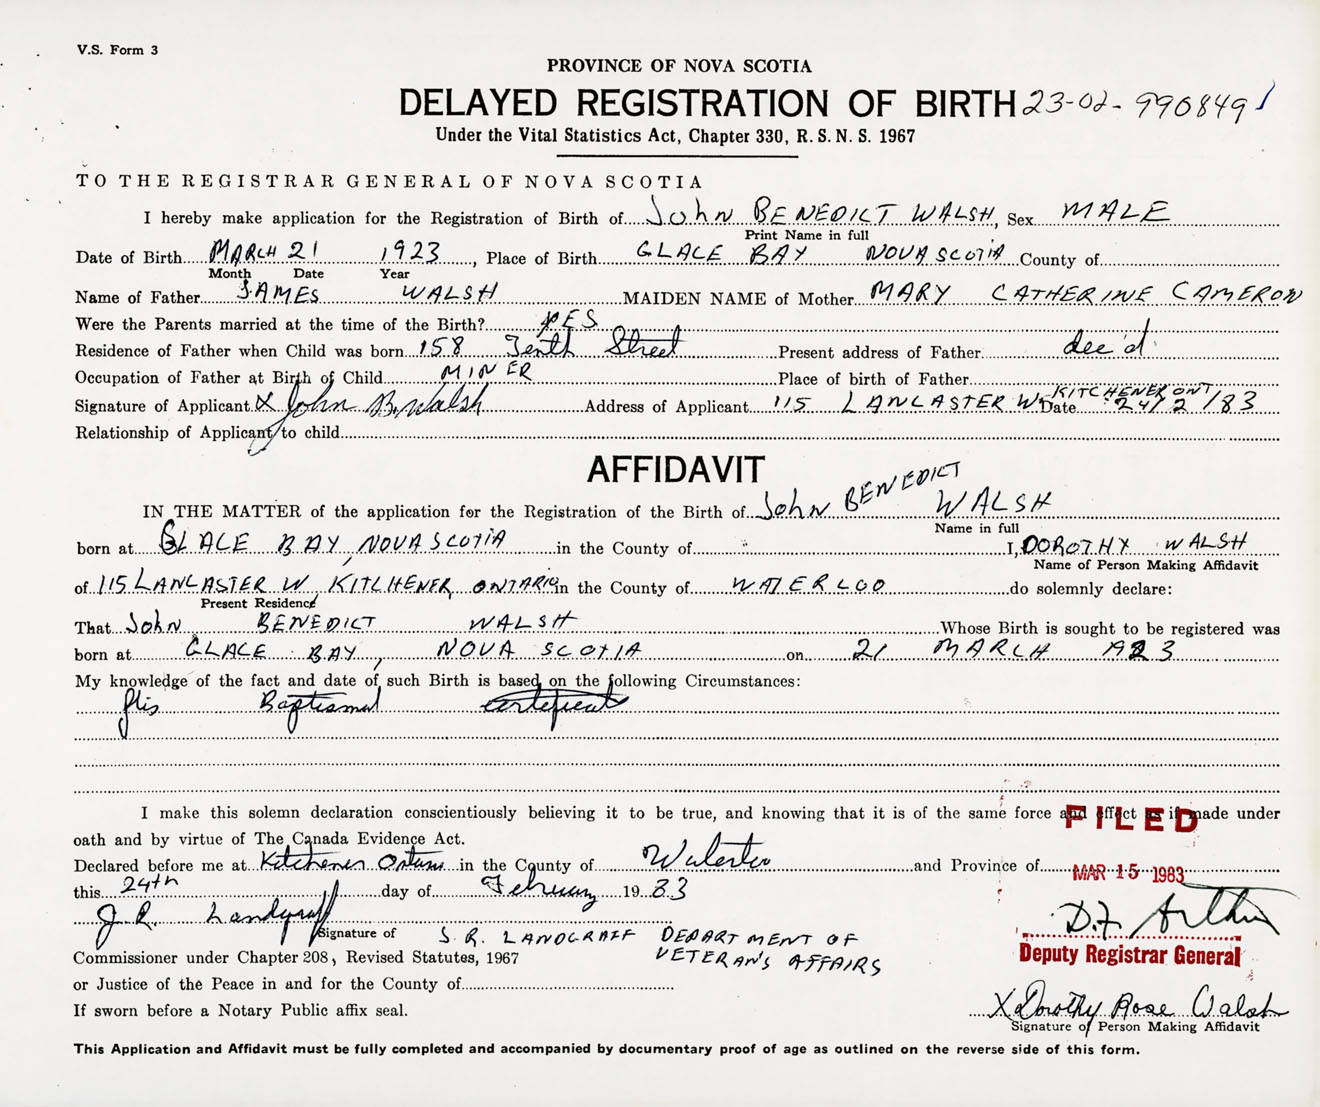 V.S. Form 3
PROVINCE OF NOVA SCOTIA
DELAYED REGISTRATION OF BIRTH 23-02-990849
Under the Vital Statistics Act, Chapter 330, R.S.N.S. 1967
TO THE REGISTRAR GENERAL OF NOVA SCOTIA
I hereby make application for the Registration of Birth of John BENEDICT WALSH, Sex MALE
Print Name in full
Date of Birth MARCH 21 1923, Place of Birth GLACE BAY NOVA SCOTIA County of
Month Date Year
Name of Father JAMES WALSH MAIDEN NAME of Mother MARY CATHERINE CAMERON
Were the Parents married at the time of the Birth? YES
Residence of Father when Child was born 158 Tenth Street Present address of Father dec'd
Occupation of Father at Birth of Child MINER Place of birth of Father
KITCHENER ONT
Signature of Applicant X John B. Walsh Address of Applicant 115 LANCASTER W. Date 24/2/83
Relationship of Applicant to child
AFFIDAVIT
IN THE MATTER of the application for the Registration of the Birth of John BENEDICT WALSH
Name in full
born at GLACE BAY, NOVA SCOTIA in the County of I, DOROTHY WALSH
Name of Person Making Affidavit
of 115 LANCASTER W. KITCHENER, ONTARIO in the County of WATERLOO do solemnly declare:
Present Residence
That John BENEDICT WALSH Whose Birth is sought to be registered was
born at GLACE BAY, NOVA SCOTIA on 21 MARCH 1923
My knowledge of the fact and date of such Birth is based on the following Circumstances:
His Baptismal Certificate
I make this solemn declaration conscientiously believing it to be true, and knowing that it is of the same force and effect as if made under
oath and by virtue of The Canada Evidence Act.
FILED
Declared before me at Kitchener Ontario in the County of Waterloo and Province of
MAR 15 1983
this 24th day of February 19 83
J.R. Landgraff
D.F. Arthur
Signature of J.R. LANDGRAFF DEPARTMENT OF
VETERAN'S AFFAIRS
Deputy Registrar General
Commissioner under Chapter 208, Revised Statutes, 1967
or Justice of the Peace in and for the County of
If sworn before a Notary Public affix seal.
X Dorothy Rose Walsh
Signature of Person Making Affidavit
This Application and Affidavit must be fully completed and accompanied by documentary proof of age as outlined on the reverse side of this form.